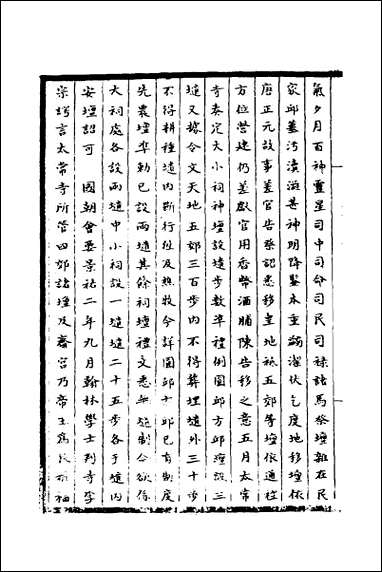 氣夕月百神靈星司中司命司民司祿諸馬祭壇雜在民
家邱墓汚瀆誕甚神明降鑒本重蠲潔伏乞度地移壇依
唐正元故事差官告祭詔悉移皇地祇五郊等壇依通径
方位營建仍差獻官用香幣酒脯陳告移之意五月太常
寺奏定大小祠神壇設壝步數準禮例圜邱方邱壇設三
壝又據令文天地五郊三百步内不得葬埋壝外三十步
不得耕種壝内斷行徑及熱牧今詳圜邱十邱已有制度
先農壇準勅已設兩壝其餘祠壇禮文悉無壝制今欲除
大祠處各設兩壝中小祠設一壝壝二十五步各于壝内
安壇詔可　國朝會要景祐二年九月翰林學士判寺李
宗諤言太常寺所管四郊諸壇及齋宮乃帝王為民祈福